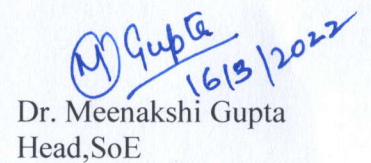 M Gupta
16/3/2022
Dr. Meenakshi Gupta
Head,SoE